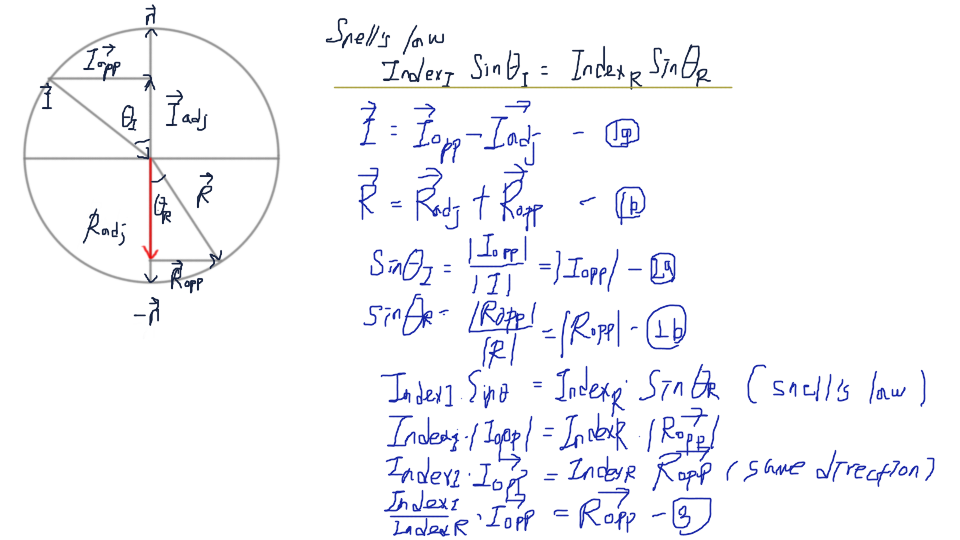 n⃗
I⃗opp
I⃗
θI
I⃗adj
θR
R⃗
Radj
R⃗opp
-n⃗
Snell's law
IndexI SinθI = IndexR SinθR
I⃗ = I⃗opp - I⃗adj - 1a
R⃗ = R⃗adj + R⃗opp - 1b
SinθI = |Iopp| / |I| = |Iopp| - 2a
sinθR = |Ropp| / |R| = |Ropp| - 2b
IndexI · Sinθ = IndexR · SinθR (snell's law)
IndexI · |Iopp| = IndexR · |R⃗opp|
IndexI · I⃗opp = IndexR R⃗opp (same direction)
IndexI / IndexR · I⃗opp = R⃗opp - 3